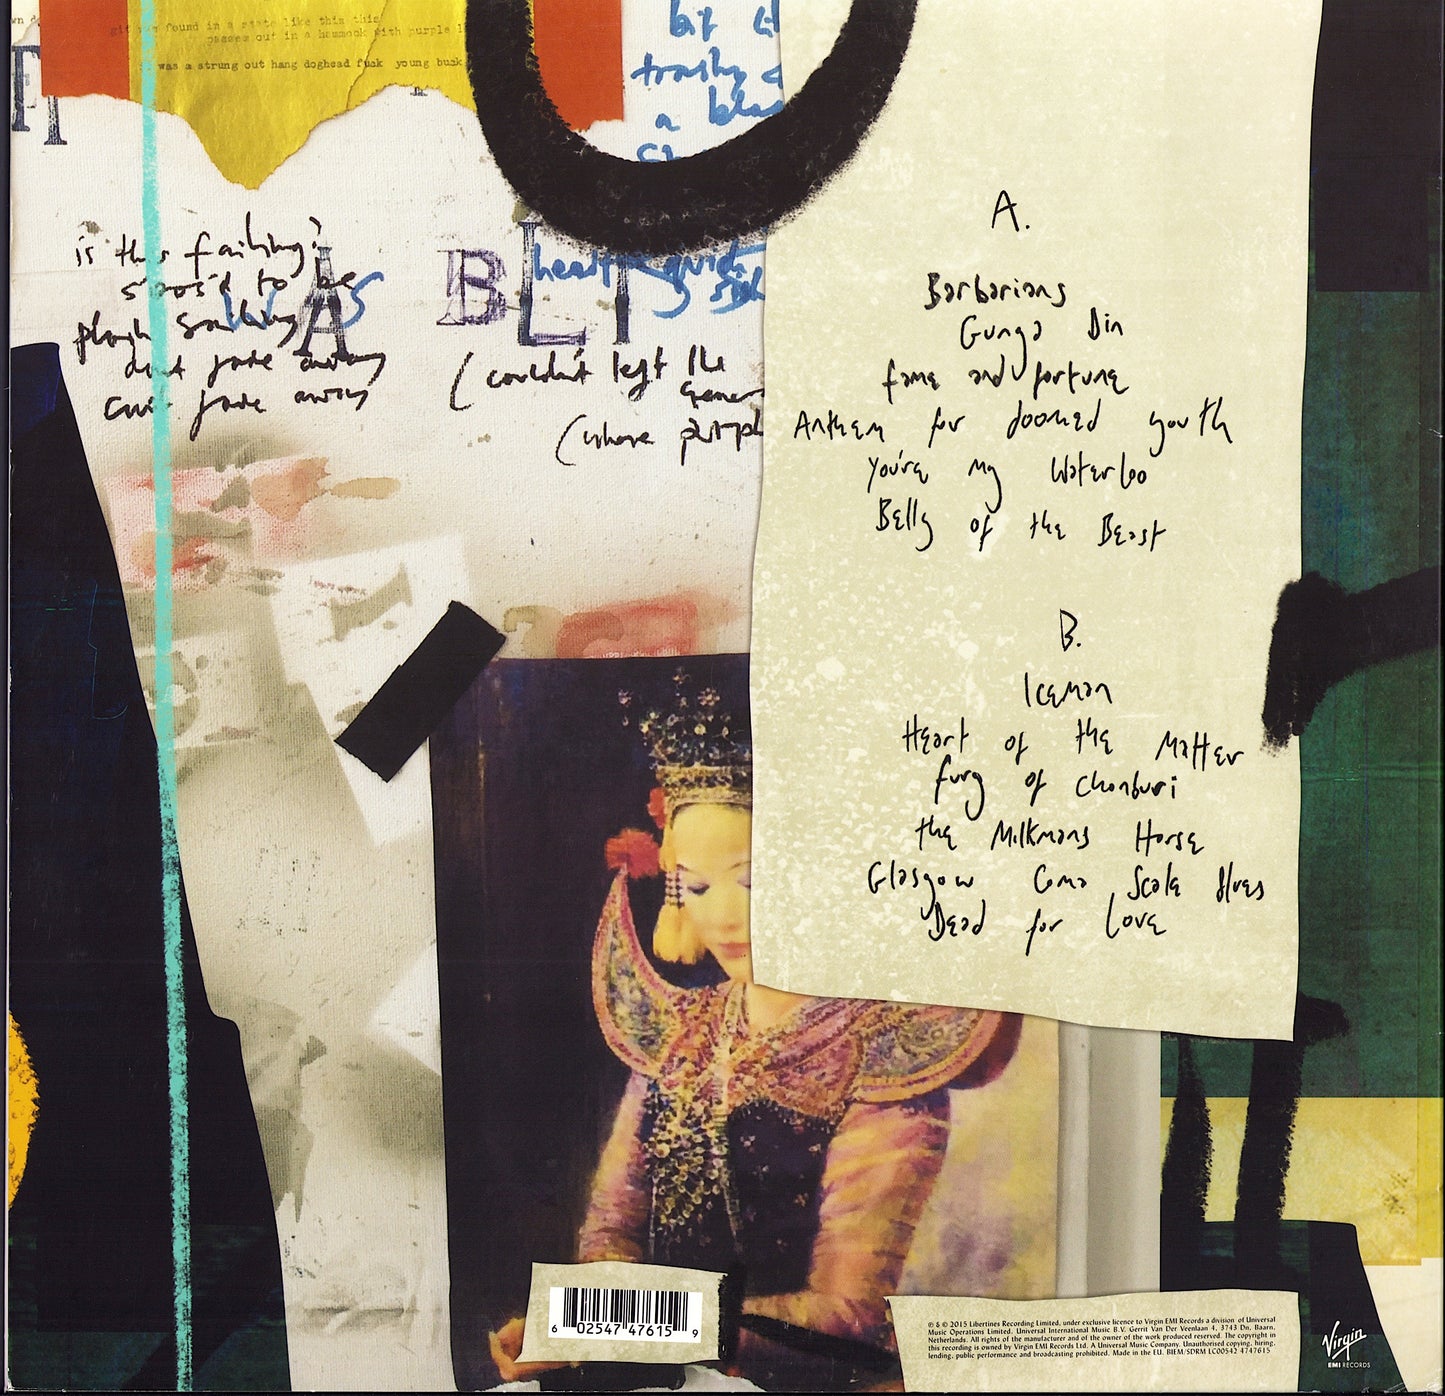 git you found in a state like this this
passes out in a hammock with purple
was a strung out hang doghead fuck young buck
bit
trashy
a
is this failing?
spos'd to be
plain sailing
dont fade away
cant fade away
WAS
BLI
(couldn't left the
(whore purpl
A.
Barbarians
Gunga Din
fame and fortune
Anthem for doomed youth
You're my Waterloo
Belly of the Beast
B.
Iceman
Heart of the Matter
fury of Chonburi
the Milkmans Horse
Glasgow Coma Scale Blues
Dead for Love
6 02547 47615 9
℗ & © 2015 Libertines Recording Limited, under exclusive licence to Virgin EMI Records a division of Universal
Music Operations Limited. Universal International Music B.V. Gerrit Van Der Veenlaan 4, 3743 Dn, Baarn,
Netherlands. All rights of the manufacturer and of the owner of the work produced reserved. The copyright in
this recording is owned by Virgin EMI Records Ltd. A Universal Music Company. Unauthorised copying, hiring,
lending, public performance and broadcasting prohibited. Made in the EU. BIEM/SDRM LC00542 4747615
Virgin
EMI RECORDS